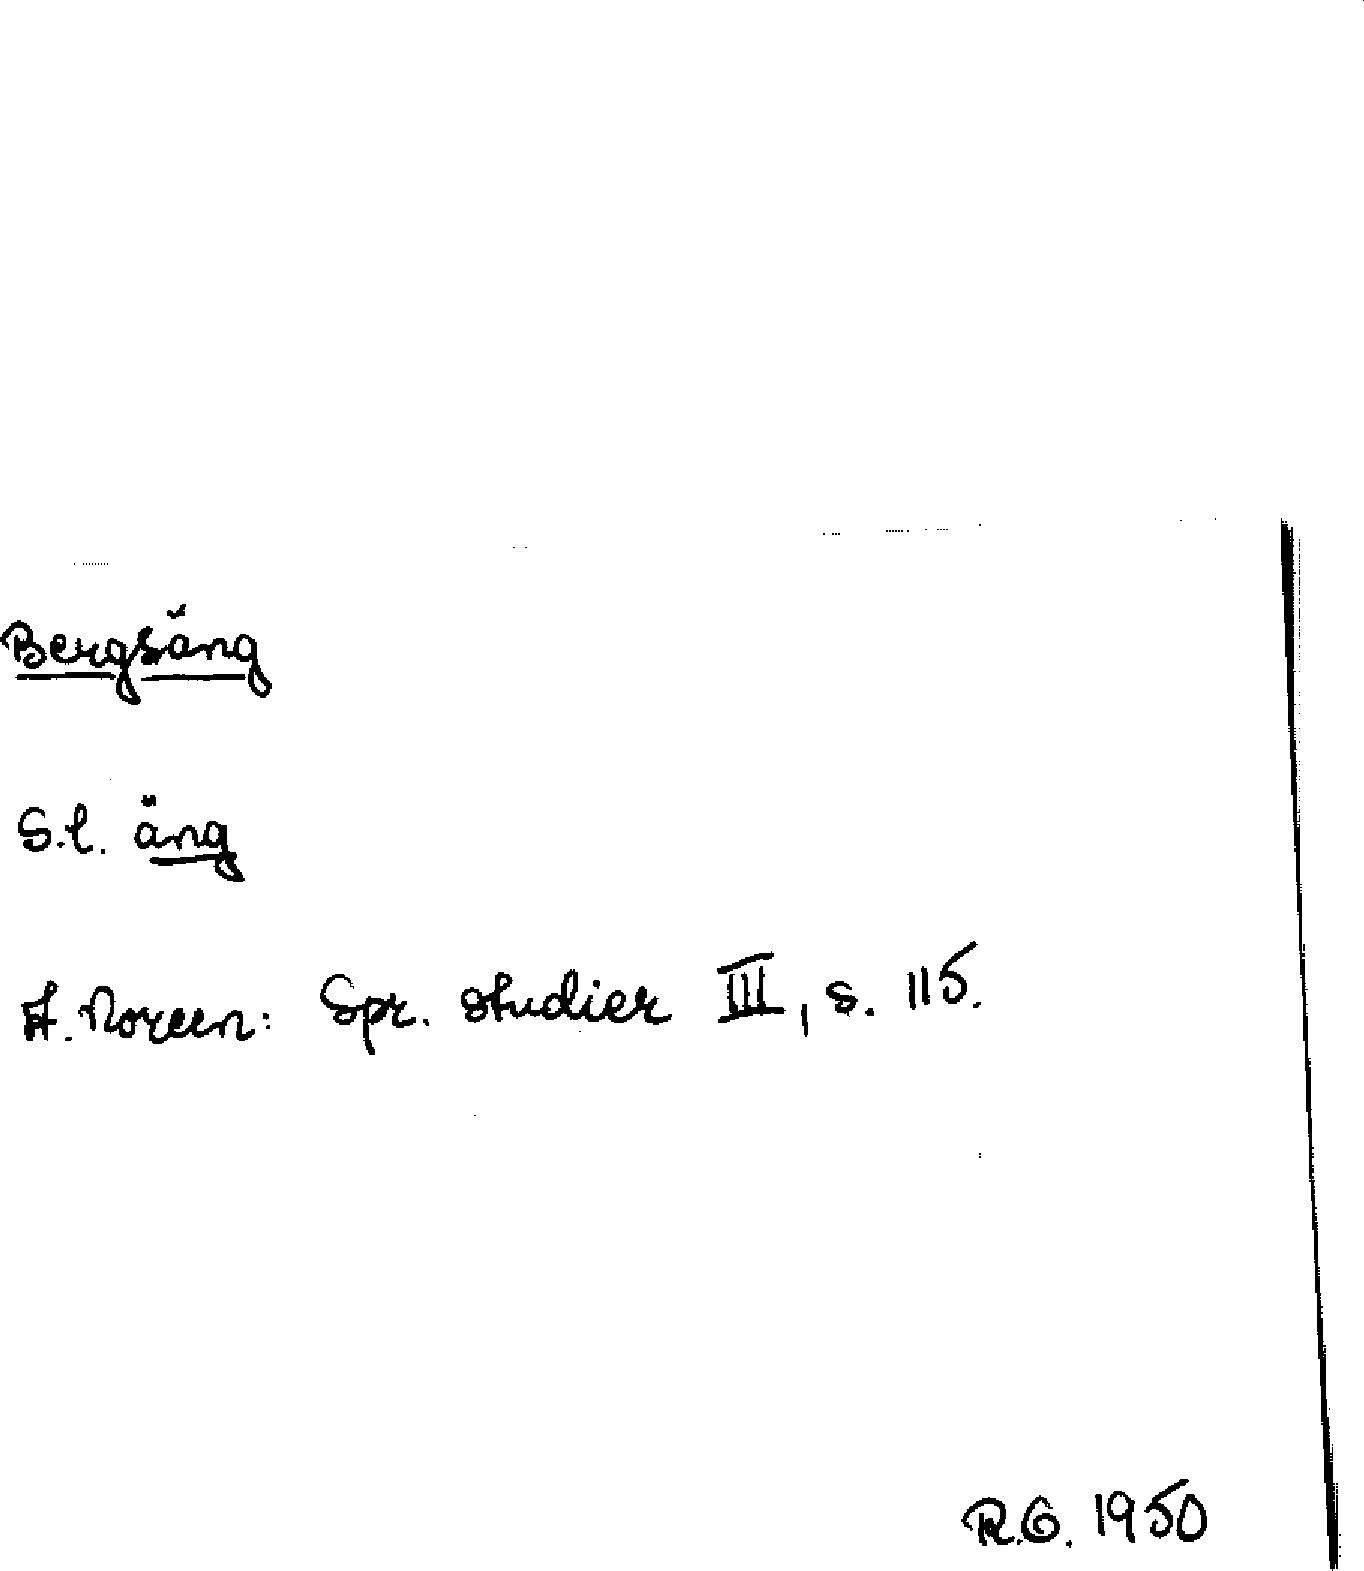 Bergsäng
S.l. äng
A. Noreen: Spr. studier III, s. 115.
R.G. 1950